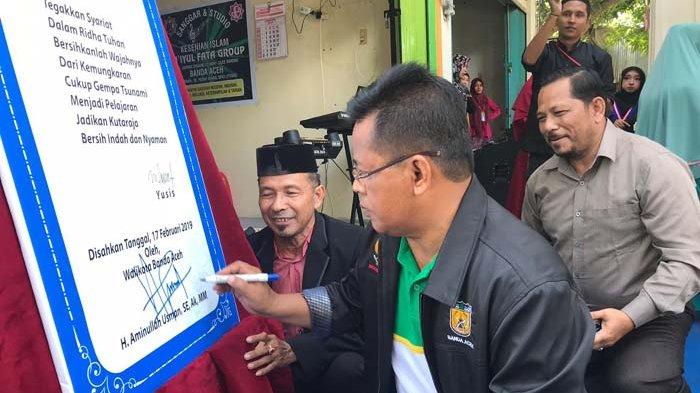 Tegakkan Syariat
Dalam Ridha Tuhan
Bersihkanlah Wajahnya
Dari Kemungkaran
Cukup Gempa Tsunami
Menjadi Pelajaran
Jadikan Kutaraja
Bersih Indah dan Nyaman
Yusis
Disahkan Tanggal, 17 Februari 2019
Oleh,
Walikota Banda Aceh
H. Aminullah Usman, SE, Ak, MM
SANGGAR & STUDIO
KESENIAN ISLAM
FATA GROUP
BANDA ACEH
BANDA ACEH